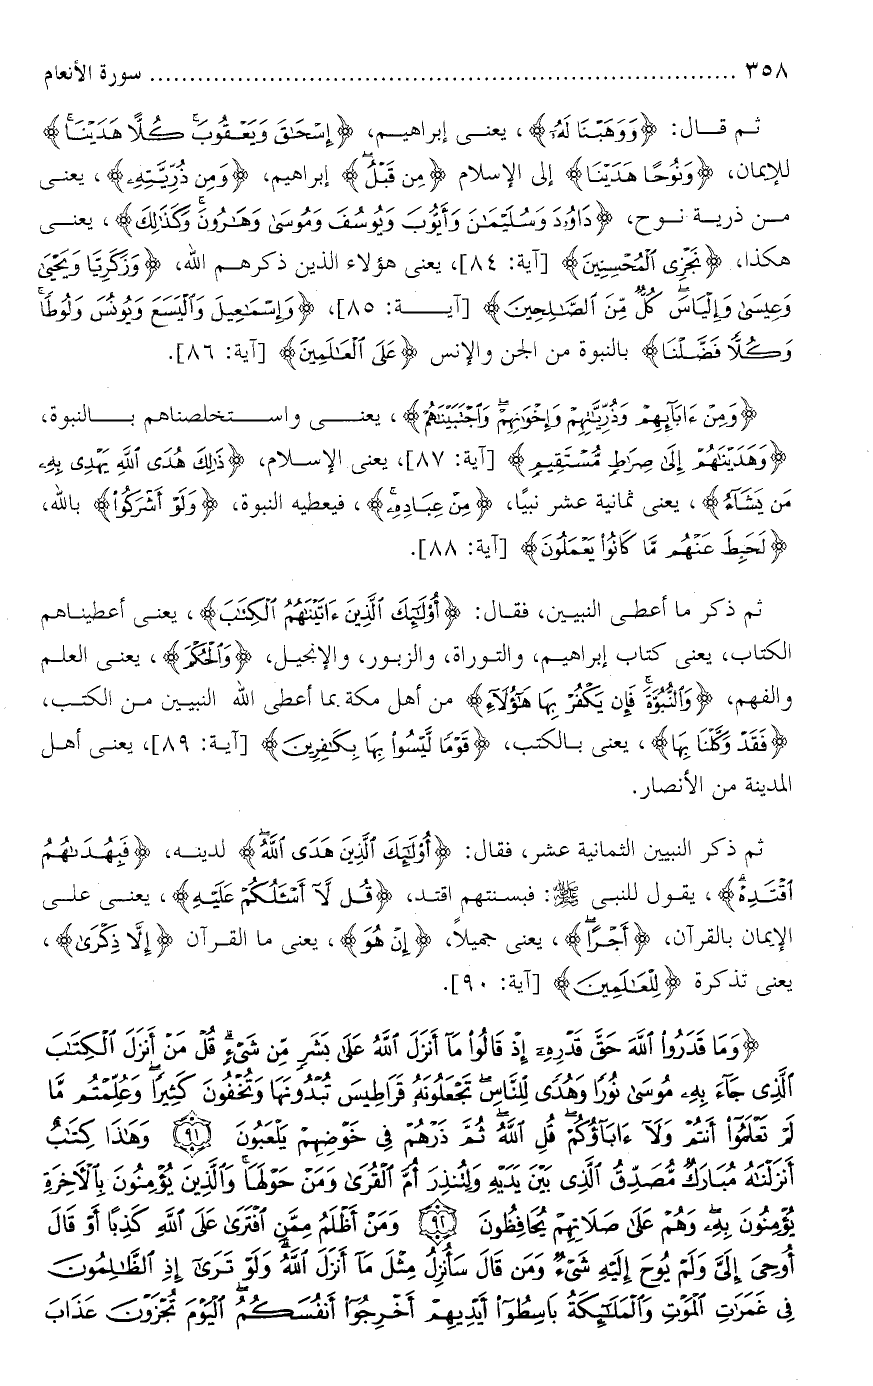 ٣٥٨ ........................................................................... سورة الأنعام
ثم قال: ﴿وَوَهَبْنَا لَهُۥٓ﴾، يعنى إبراهيم، ﴿إِسْحَٰقَ وَيَعْقُوبَ ۚ كُلًّا هَدَيْنَا ۚ﴾
للإيمان، ﴿وَنُوحًا هَدَيْنَا﴾ إلى الإسلام ﴿مِن قَبْلُ ۖ﴾ إبراهيم، ﴿وَمِن ذُرِّيَّتِهِۦ﴾، يعنى
من ذرية نوح، ﴿دَاوُۥدَ وَسُلَيْمَٰنَ وَأَيُّوبَ وَيُوسُفَ وَمُوسَىٰ وَهَٰرُونَ ۚ وَكَذَٰلِكَ﴾، يعنى
هكذا، ﴿نَجْزِى ٱلْمُحْسِنِينَ﴾ [آية: ٨٤]، يعنى هؤلاء الذين ذكرهم الله، ﴿وَزَكَرِيَّا وَيَحْيَىٰ
وَعِيسَىٰ وَإِلْيَاسَ ۖ كُلٌّ مِّنَ ٱلصَّٰلِحِينَ﴾ [آية: ٨٥]، ﴿وَإِسْمَٰعِيلَ وَٱلْيَسَعَ وَيُونُسَ وَلُوطًا ۚ
وَكُلًّا فَضَّلْنَا﴾ بالنبوة من الجن والإنس ﴿عَلَى ٱلْعَٰلَمِينَ﴾ [آية: ٨٦].
﴿وَمِنْ ءَابَآئِهِمْ وَذُرِّيَّٰتِهِمْ وَإِخْوَٰنِهِمْ ۖ وَٱجْتَبَيْنَٰهُمْ﴾، يعنى واستخلصناهم بالنبوة،
﴿وَهَدَيْنَٰهُمْ إِلَىٰ صِرَٰطٍ مُّسْتَقِيمٍ﴾ [آية: ٨٧]، يعنى الإسلام، ﴿ذَٰلِكَ هُدَى ٱللَّهِ يَهْدِى بِهِۦ
مَن يَشَآءُ﴾، يعنى ثمانية عشر نبيًا، ﴿مِنْ عِبَادِهِۦ ۚ﴾، فيعطيه النبوة، ﴿وَلَوْ أَشْرَكُوا۟﴾ بالله،
﴿لَحَبِطَ عَنْهُم مَّا كَانُوا۟ يَعْمَلُونَ﴾ [آية: ٨٨].
ثم ذكر ما أعطى النبيين، فقال: ﴿أُو۟لَٰٓئِكَ ٱلَّذِينَ ءَاتَيْنَٰهُمُ ٱلْكِتَٰبَ﴾، يعنى أعطيناهم
الكتاب، يعنى كتاب إبراهيم، والتوراة، والزبور، والإنجيل، ﴿وَٱلْحُكْمَ﴾، يعنى العلم
والفهم، ﴿وَٱلنُّبُوَّةَ ۚ فَإِن يَكْفُرْ بِهَا هَٰٓؤُلَآءِ﴾ من أهل مكة بما أعطى الله النبيين من الكتب،
﴿فَقَدْ وَكَّلْنَا بِهَا﴾، يعنى بالكتب، ﴿قَوْمًا لَّيْسُوا۟ بِهَا بِكَٰفِرِينَ﴾ [آية: ٨٩]، يعنى أهل
المدينة من الأنصار.
ثم ذكر النبيين الثمانية عشر، فقال: ﴿أُو۟لَٰٓئِكَ ٱلَّذِينَ هَدَى ٱللَّهُ ۖ﴾ لدينه، ﴿فَبِهُدَىٰهُمُ
ٱقْتَدِهْ ۗ﴾، يقول للنبى ﷺ: فبسنتهم اقتد، ﴿قُل لَّآ أَسْـَٔلُكُمْ عَلَيْهِ﴾، يعنى على
الإيمان بالقرآن، ﴿أَجْرًا ۖ﴾، يعنى جميلاً، ﴿إِنْ هُوَ﴾، يعنى ما القرآن ﴿إِلَّا ذِكْرَىٰ﴾،
يعنى تذكرة ﴿لِلْعَٰلَمِينَ﴾ [آية: ٩٠].
﴿وَمَا قَدَرُوا۟ ٱللَّهَ حَقَّ قَدْرِهِۦٓ إِذْ قَالُوا۟ مَآ أَنزَلَ ٱللَّهُ عَلَىٰ بَشَرٍ مِّن شَىْءٍ ۗ قُلْ مَنْ أَنزَلَ ٱلْكِتَٰبَ
ٱلَّذِى جَآءَ بِهِۦ مُوسَىٰ نُورًا وَهُدًى لِّلنَّاسِ ۖ تَجْعَلُونَهُۥ قَرَاطِيسَ تُبْدُونَهَا وَتُخْفُونَ كَثِيرًا ۖ وَعُلِّمْتُم مَّا
لَمْ تَعْلَمُوٓا۟ أَنتُمْ وَلَآ ءَابَآؤُكُمْ ۖ قُلِ ٱللَّهُ ۖ ثُمَّ ذَرْهُمْ فِى خَوْضِهِمْ يَلْعَبُونَ ٩١ وَهَٰذَا كِتَٰبٌ
أَنزَلْنَٰهُ مُبَارَكٌ مُّصَدِّقُ ٱلَّذِى بَيْنَ يَدَيْهِ وَلِتُنذِرَ أُمَّ ٱلْقُرَىٰ وَمَنْ حَوْلَهَا ۚ وَٱلَّذِينَ يُؤْمِنُونَ بِٱلْـَٔاخِرَةِ
يُؤْمِنُونَ بِهِۦ ۖ وَهُمْ عَلَىٰ صَلَاتِهِمْ يُحَافِظُونَ ٩٢ وَمَنْ أَظْلَمُ مِمَّنِ ٱفْتَرَىٰ عَلَى ٱللَّهِ كَذِبًا أَوْ قَالَ
أُوحِىَ إِلَىَّ وَلَمْ يُوحَ إِلَيْهِ شَىْءٌ وَمَن قَالَ سَأُنزِلُ مِثْلَ مَآ أَنزَلَ ٱللَّهُ ۗ وَلَوْ تَرَىٰٓ إِذِ ٱلظَّٰلِمُونَ
فِى غَمَرَٰتِ ٱلْمَوْتِ وَٱلْمَلَٰٓئِكَةُ بَاسِطُوٓا۟ أَيْدِيهِمْ أَخْرِجُوٓا۟ أَنفُسَكُمُ ۖ ٱلْيَوْمَ تُجْزَوْنَ عَذَابَ